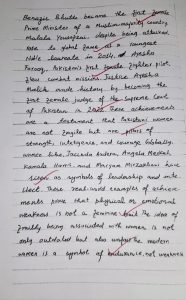 Benazir Bhutto became the first female
Prime Minister of a Muslim-majority country.
Malala Yousafzai, despite being attacked
rose to global fame as a youngest
Noble laureate in 2014, or Ayesha
Farooq, Pakistan's first female fighter pilot,
flew combat missions Justice Ayesha
Malik made history by becoming the
first female judge of the Supreme Court
of Pakistan in 2022 these achievements
are a testament that Pakistani women
are not fragile but are pillars of
strength, intelligence, and courage Globally,
women like Jacinda Ardern, Angela Merkel,
Kamala Harris, and Maryam Mirzakhani have
as symbols of leadership and inte
llect These real-world examples of achieve
ments prove that physical or emotional
weakness is not a feminine but the idea of
frailty being associated with women is not
only outdated but also unfair the modern
women is a symbol of endurance, not weakness